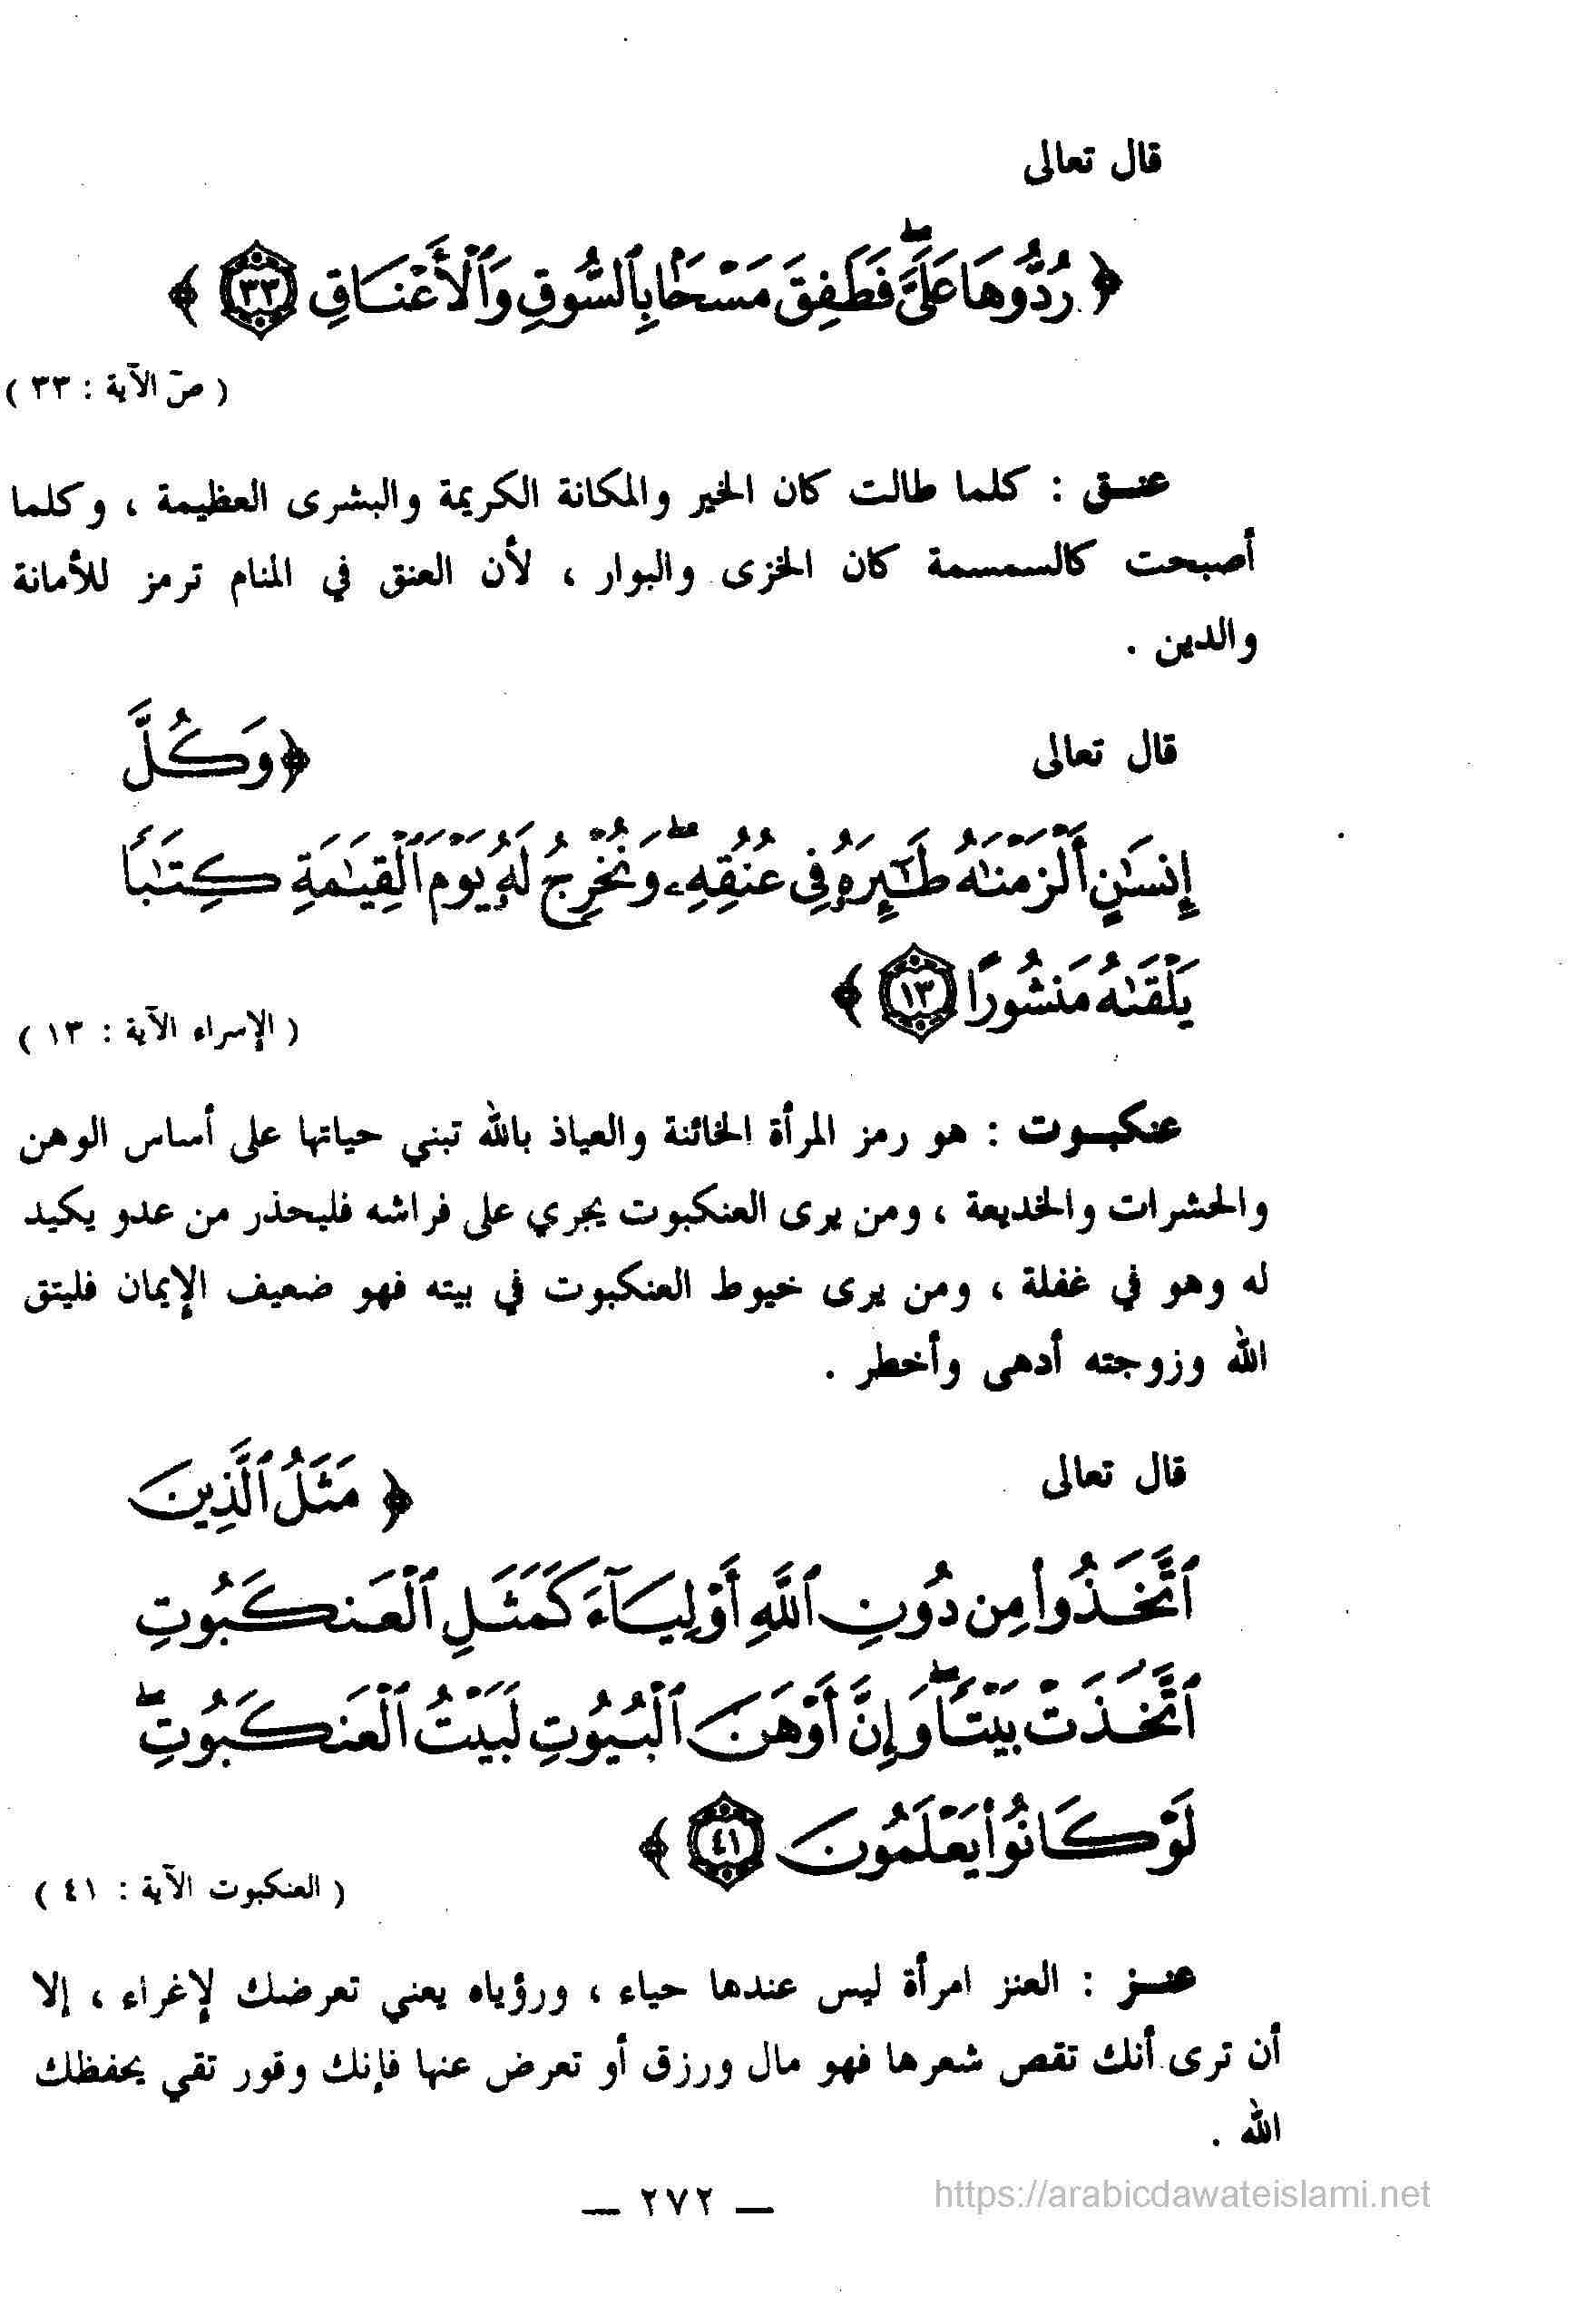 قال تعالى
﴿ رُدُّوهَا عَلَىَّ ۖ فَطَفِقَ مَسْحًۢا بِٱلسُّوقِ وَٱلْأَعْنَاقِ ٣٣ ﴾
( صّ الآية : ٣٣ )
عنـق : كلما طالت كان الخير والمكانة الكريمة والبشرى العظيمة ، وكلما
أصبحت كالسمسمة كان الخزى والبوار ، لأن العنق في المنام ترمز للأمانة
والدين .
قال تعالى ﴿ وَكُلَّ
إِنسَٰنٍ أَلْزَمْنَٰهُ طَٰٓئِرَهُۥ فِى عُنُقِهِۦ ۖ وَنُخْرِجُ لَهُۥ يَوْمَ ٱلْقِيَٰمَةِ كِتَٰبًا
يَلْقَىٰهُ مَنشُورًا ١٣ ﴾
( الإسراء الآية : ١٣ )
عنكبـوت : هو رمز المرأة الخائنة والعياذ بالله تبني حياتها على أساس الوهن
والحشرات والخديعة ، ومن يرى العنكبوت يجري على فراشه فليحذر من عدو يكيد
له وهو في غفلة ، ومن يرى خيوط العنكبوت في بيته فهو ضعيف الإيمان فليتق
الله وزوجته أدهى وأخطر .
قال تعالى ﴿ مَثَلُ ٱلَّذِينَ
ٱتَّخَذُوا۟ مِن دُونِ ٱللَّهِ أَوْلِيَآءَ كَمَثَلِ ٱلْعَنكَبُوتِ
ٱتَّخَذَتْ بَيْتًا ۖ وَإِنَّ أَوْهَنَ ٱلْبُيُوتِ لَبَيْتُ ٱلْعَنكَبُوتِ ۖ
لَوْ كَانُوا۟ يَعْلَمُونَ ٤١ ﴾
( العنكبوت الآية : ٤١ )
عنـز : العنز امرأة ليس عندها حياء ، ورؤياه يعني تعرضك لإغراء ، إلا
أن ترى أنك تقص شعرها فهو مال ورزق أو تعرض عنها فإنك وقور تقي يحفظك
الله .
— ٢٧٢ —
https://arabicdawateislami.net